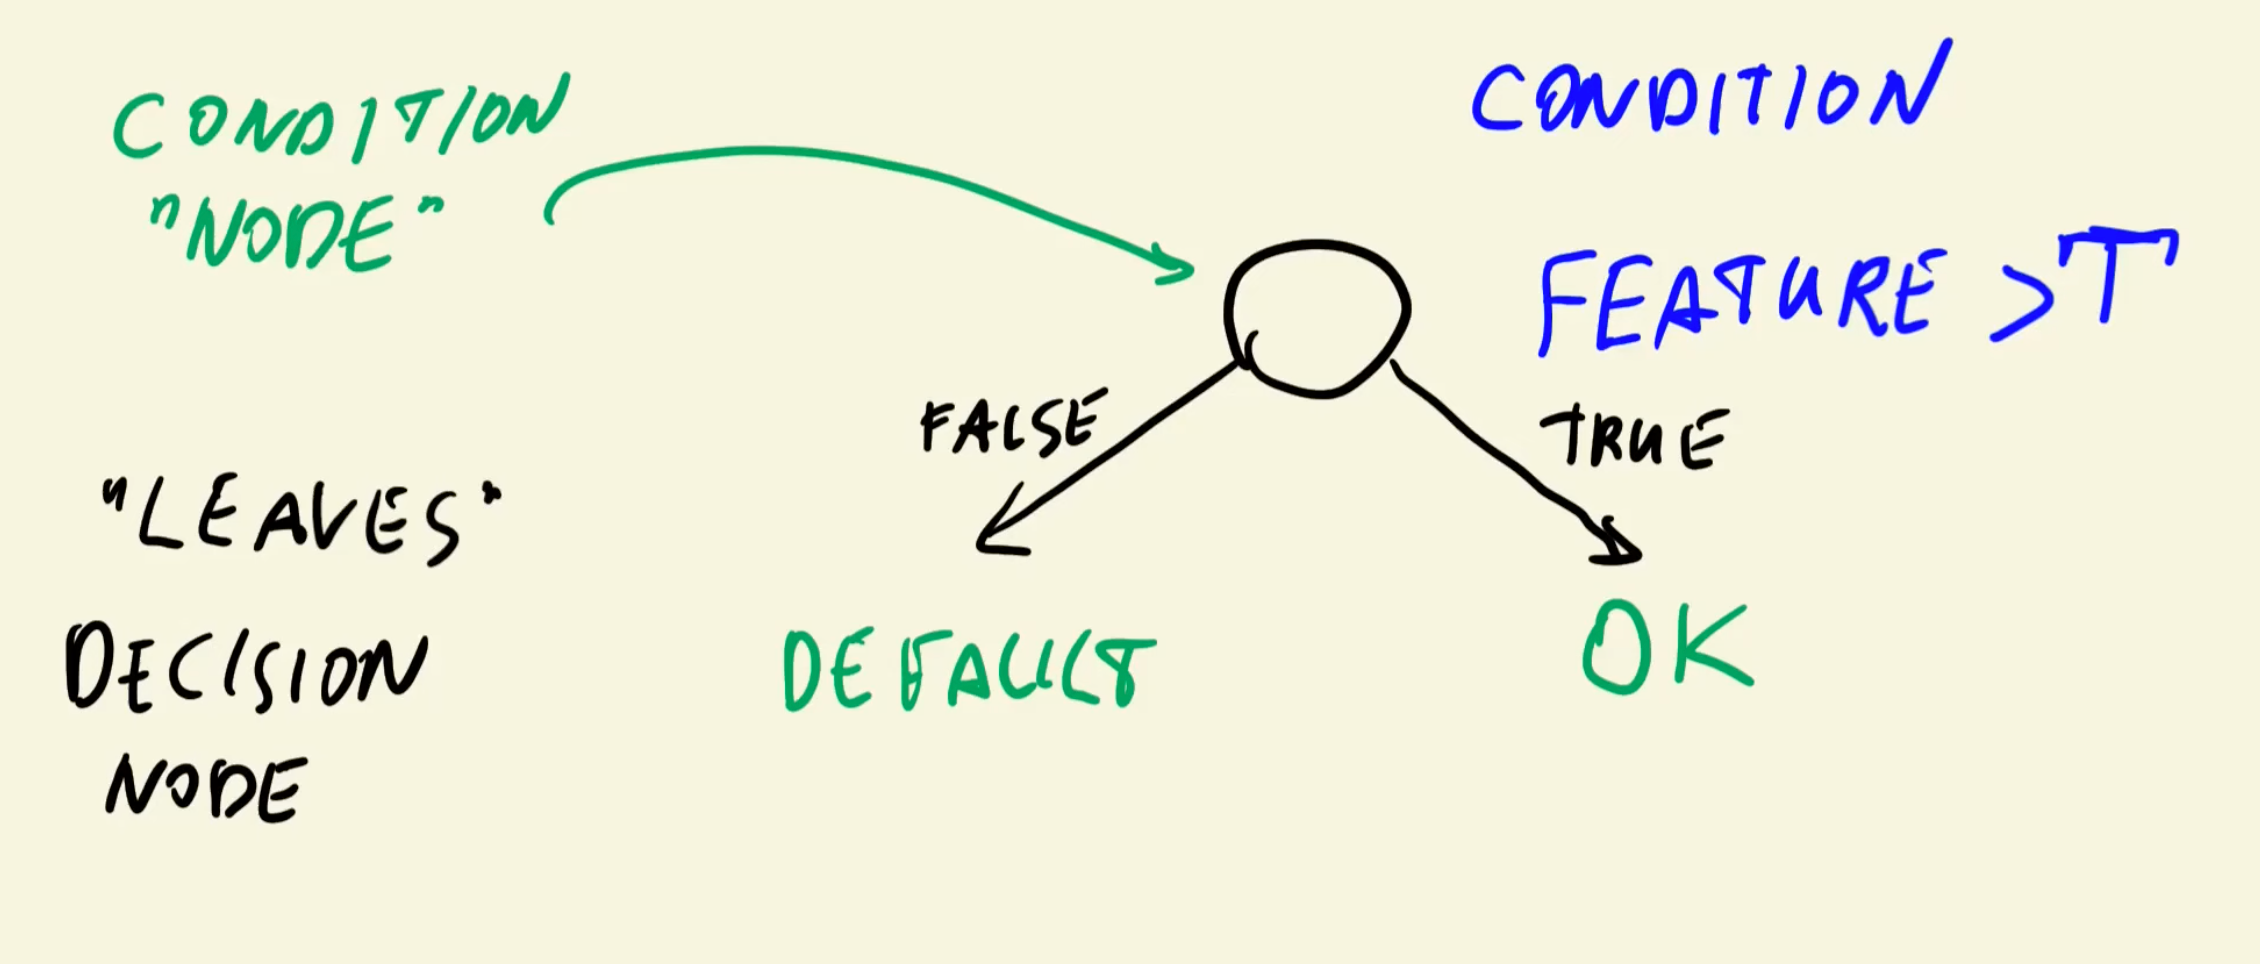 CONDITION
"NODE"
CONDITION
FEATURE > T
FALSE
TRUE
"LEAVES"
DECISION
NODE
DEFAULT
OK